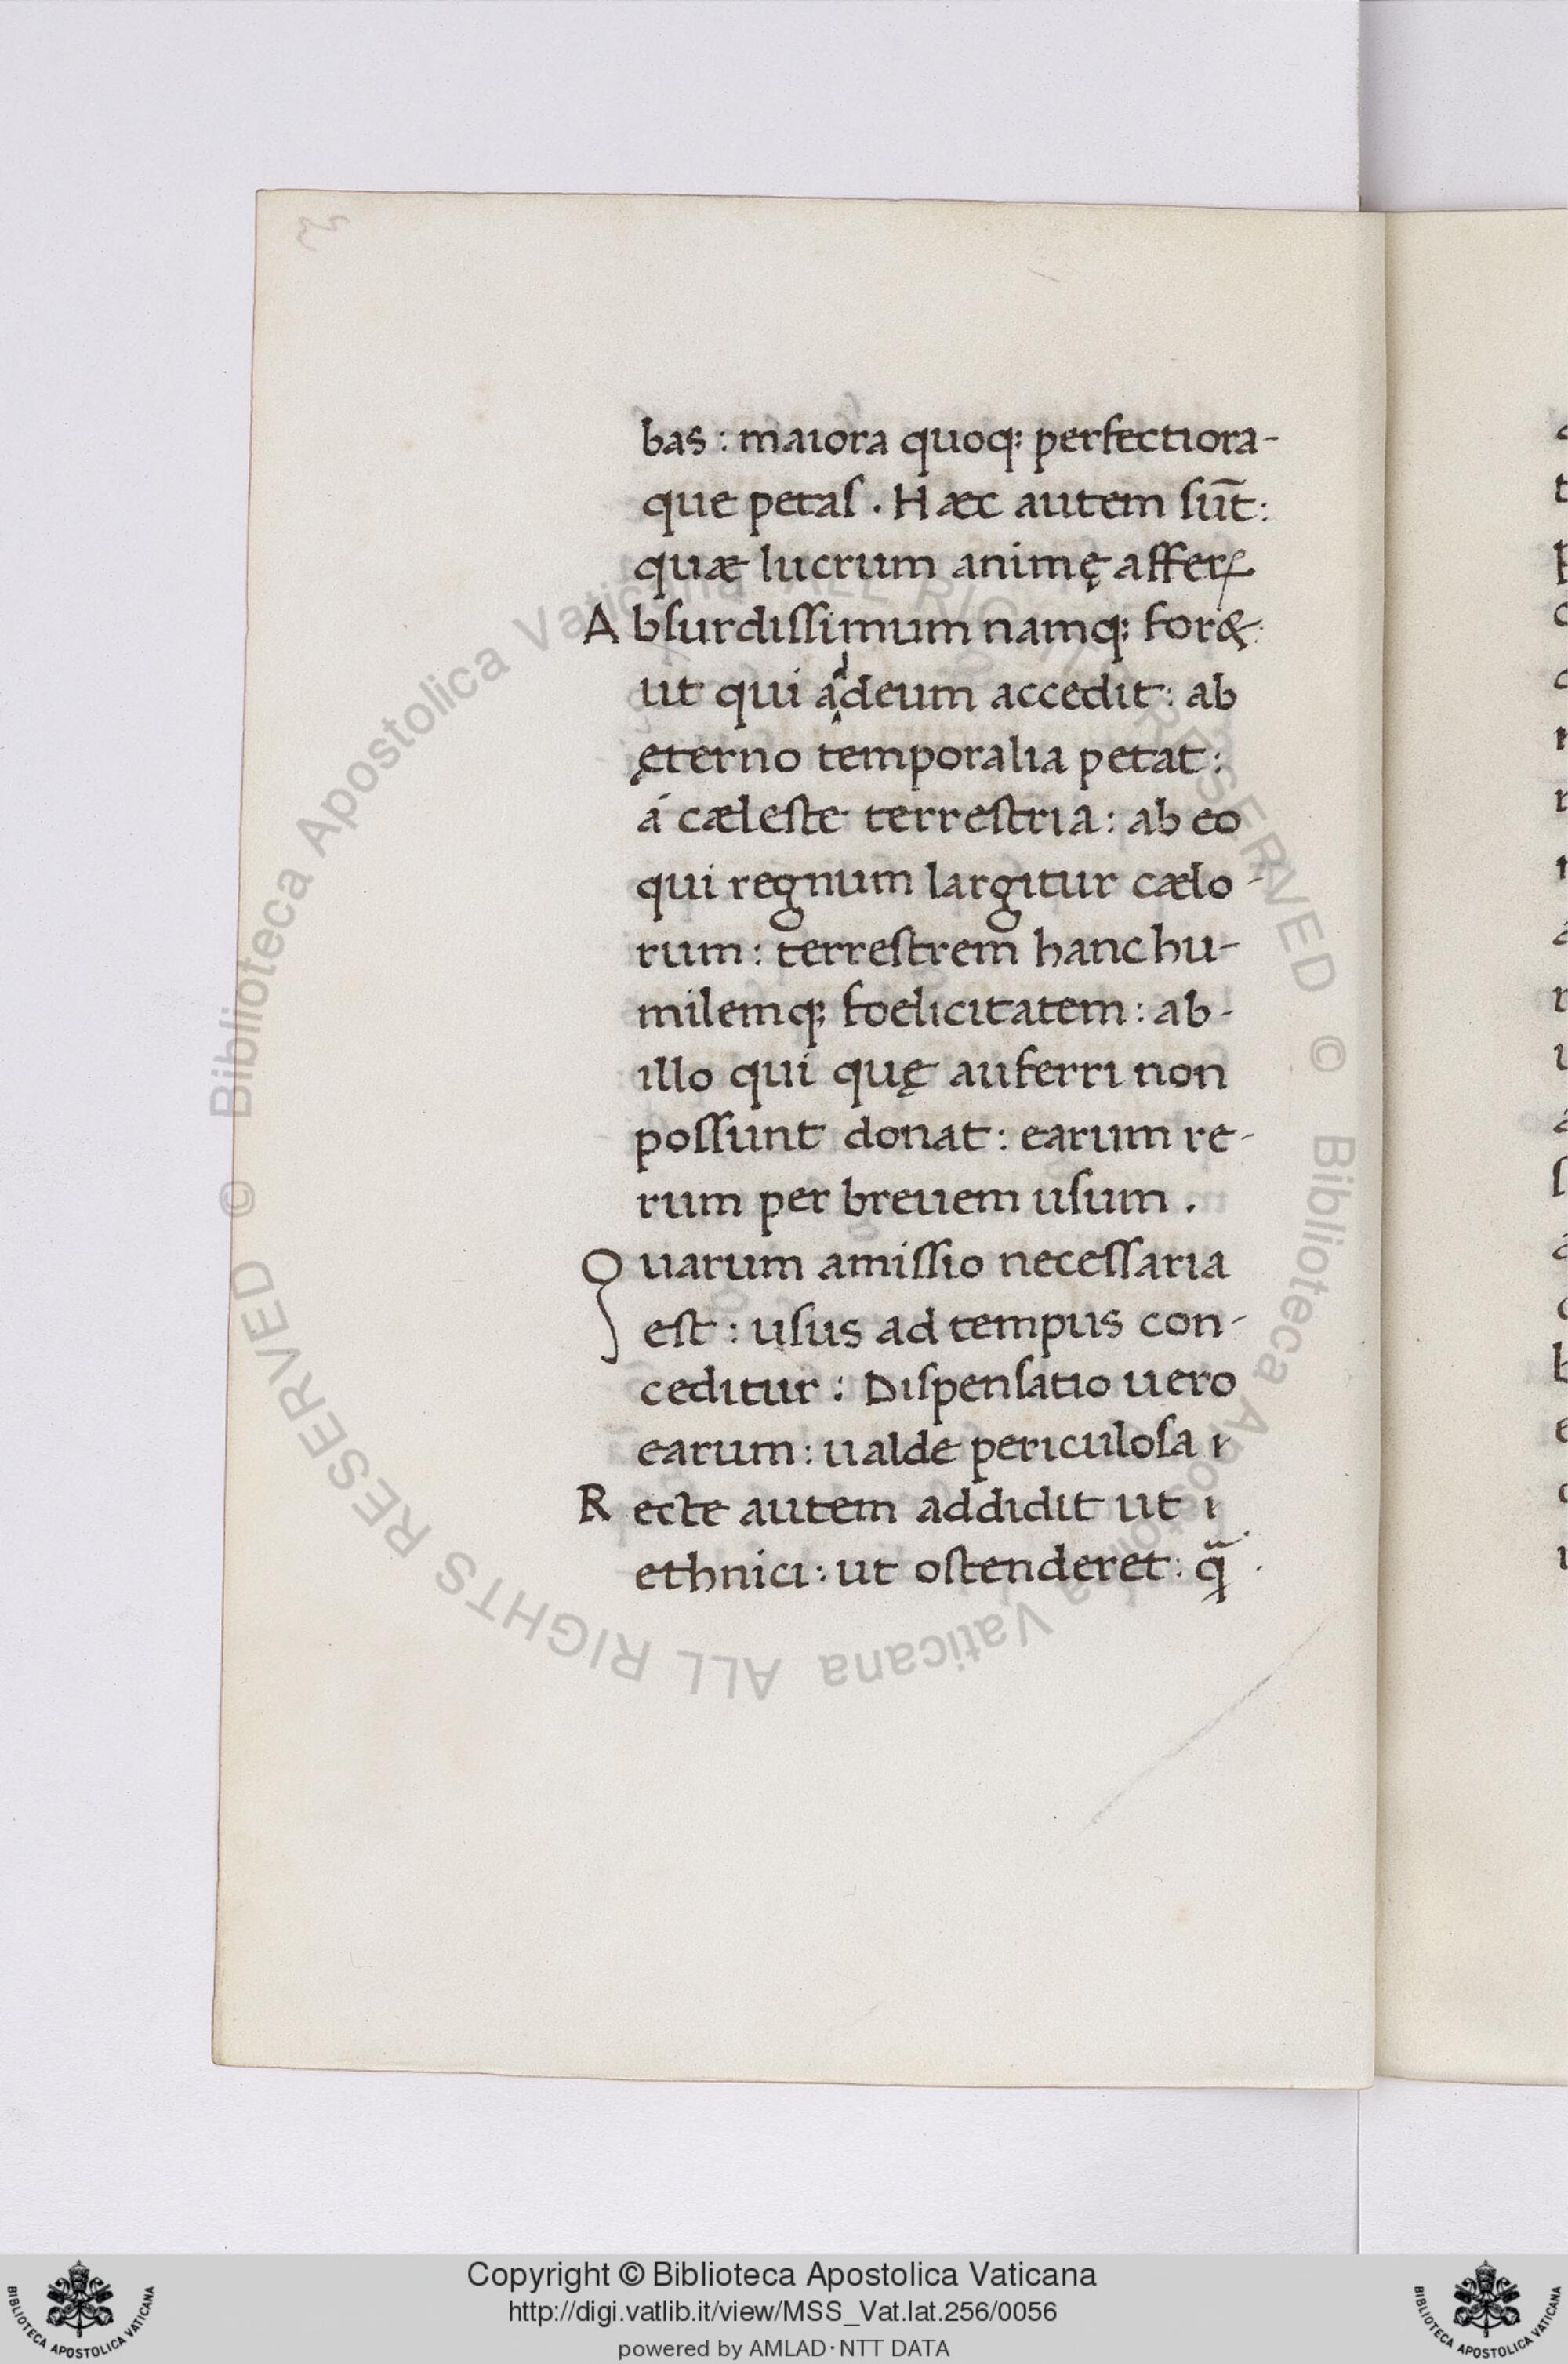 bas : maiora quoq; perfectiora-
que petaſ . Hæc autem ſūt :
quæ lucrum animę afferꝭ
Abſurdiſſimum namq; for& :
ut qui addeum accedit : ab
ęterno temporalia petat :
á cæleſte terreſtria : ab eo
qui regnum largitur cælo-
rum : terreſtrem hanc hu-
milemq; foelicitatem : ab-
illo qui quę auferri non
poſſunt donat : earum re-
rum per breuem uſum .
Quarum amiſſio neceſſaria
eſt : uſus ad tempus con-
ceditur : Diſpenſatio uero
earum : ualde periculoſa ı
Recte autem addidit ut ı
ethnici : ut oſtenderet : q̃
Biblioteca Apostolica Vaticana ALL RIGHTS RESERVED ©
Biblioteca Apostolica Vaticana ALL RIGHTS RESERVED ©
Copyright © Biblioteca Apostolica Vaticana
http://digi.vatlib.it/view/MSS_Vat.lat.256/0056
powered by AMLAD·NTT DATA
BIBLIOTECA APOSTOLICA VATICANA
BIBLIOTECA APOSTOLICA VATICANA